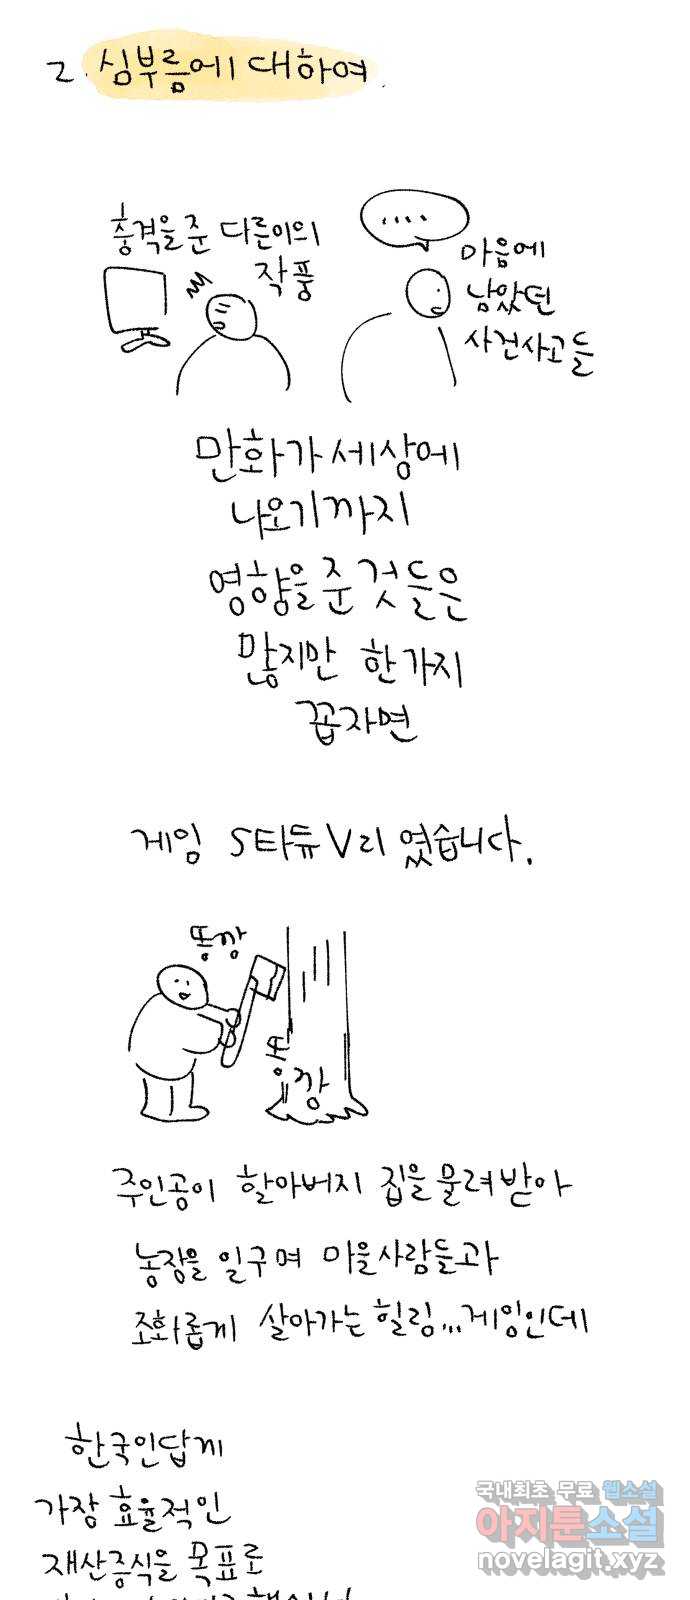 2. 심부름에 대하여.
충격을 준 다른이의
작품
....
마음에
남았던
사건사고들
만화가 세상에
나오기까지
영향을 준 것들은
많지만 한가지
꼽자면
게임 S타듀V리 였습니다.
똥깡
똥깡
주인공이 할아버지 집을 물려받아
농장을 일구며 마을사람들과
조화롭게 살아가는 힐링,,,게임인데
한국인답게
가장 효율적인
재산증식을 목표로
국내최초 무료 웹소설
아지툰소설
novelagit.xyz